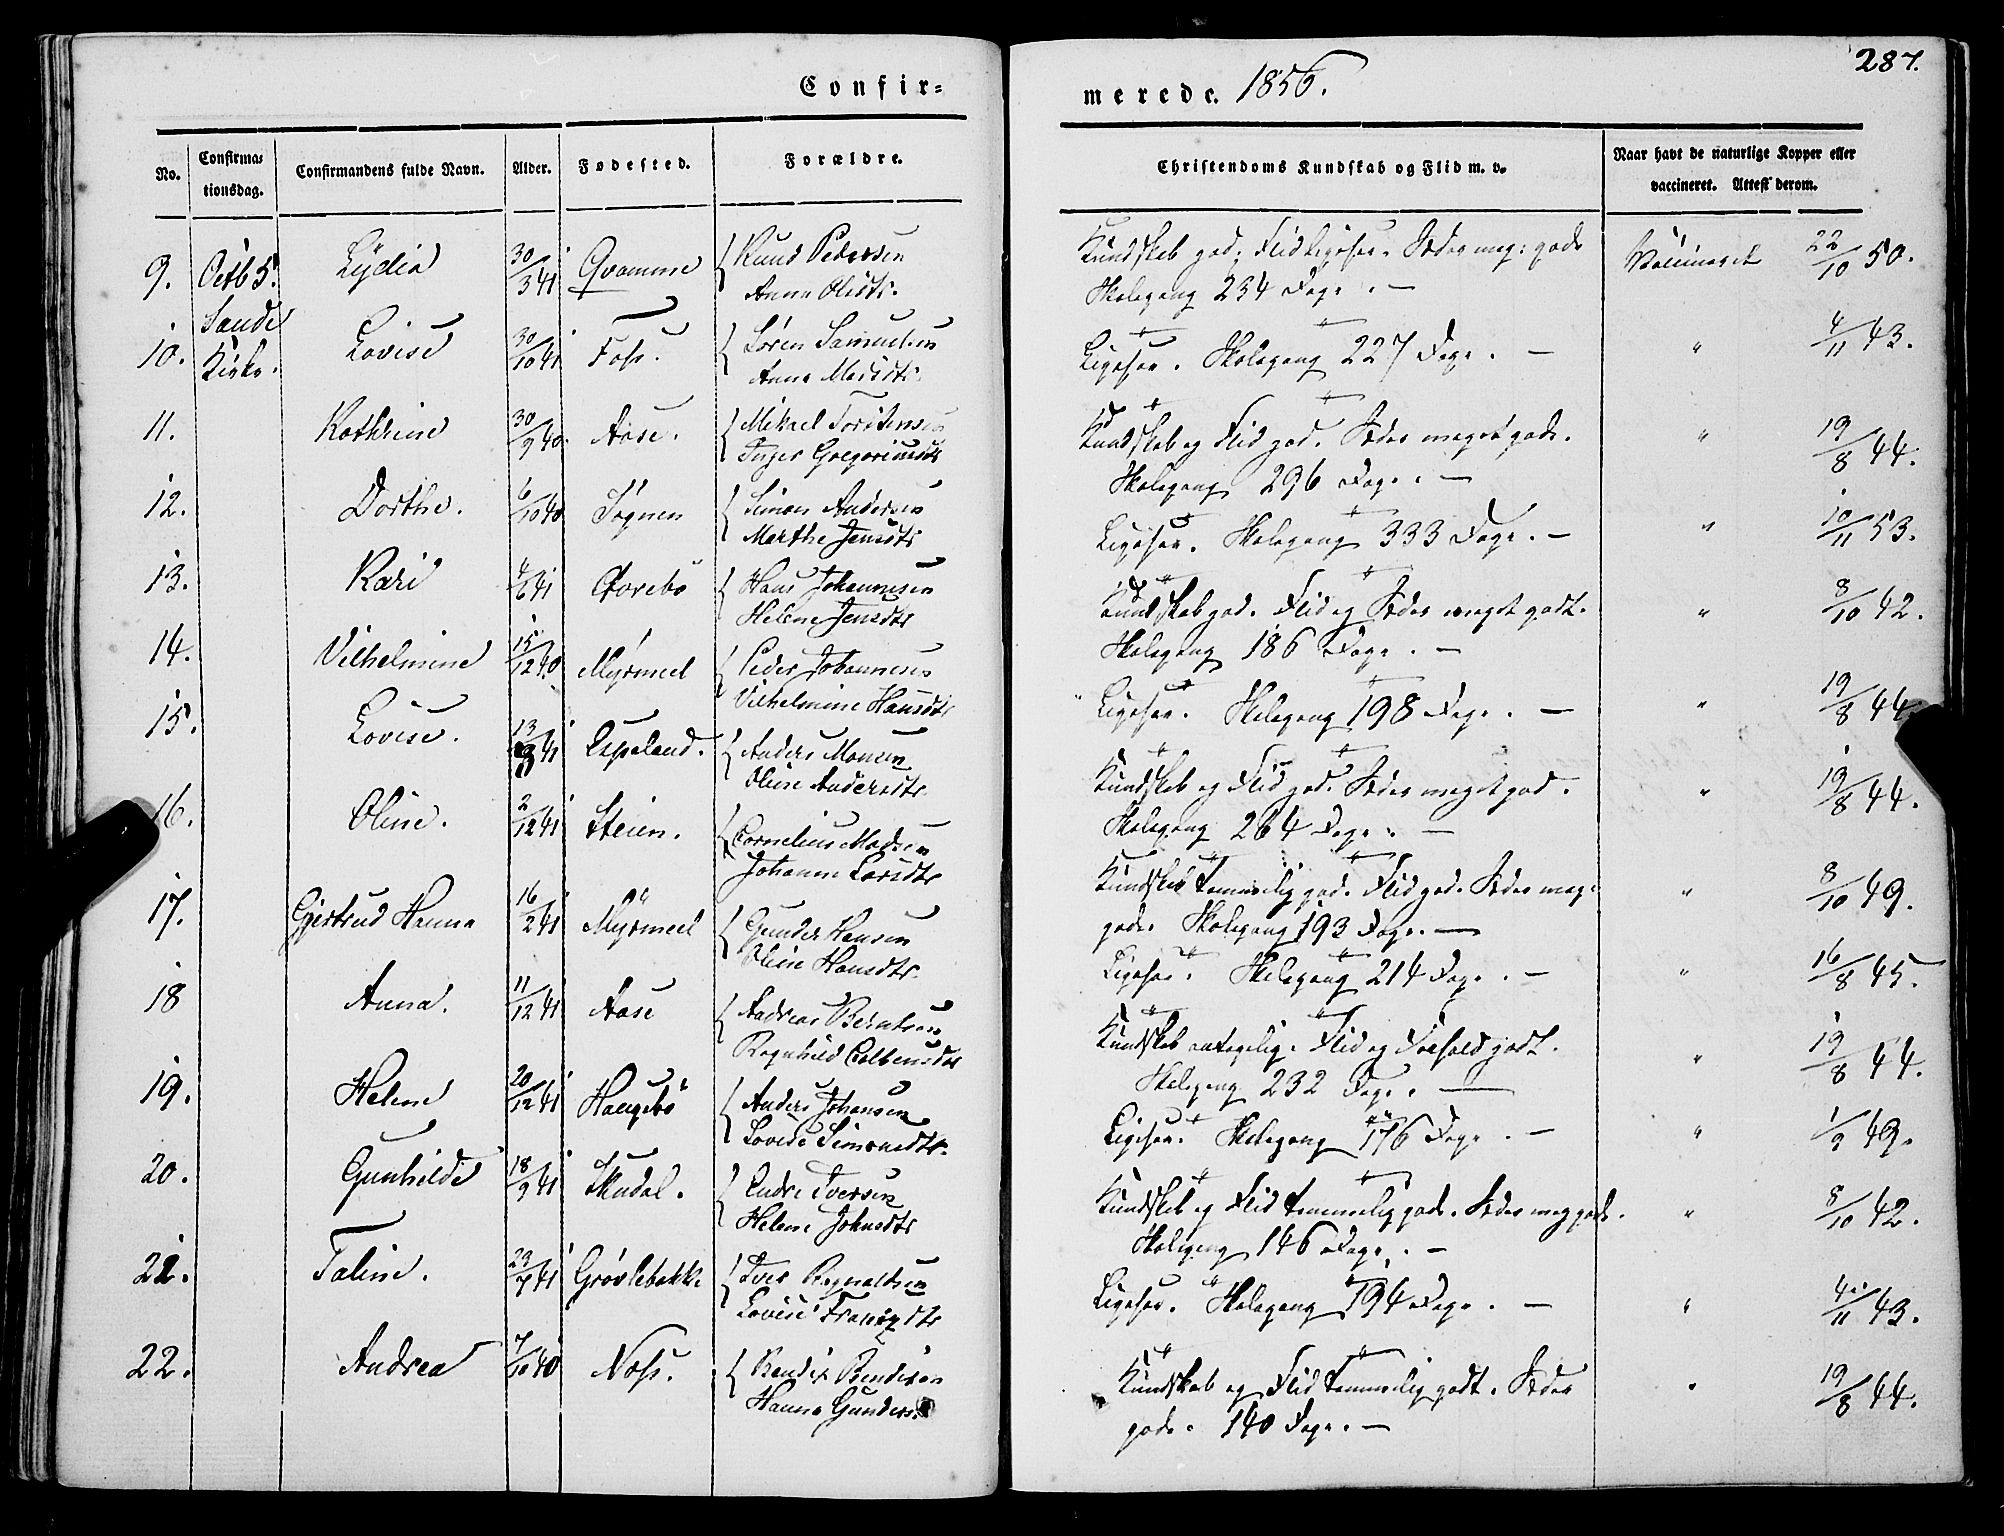 Confir-
merede. 1856.
287.
No.
Confirma-
tionsdag.
Confirmandens fulde Navn.
Alder.
Fødested.
Forældre.
Christendoms Kundskab og Flid m. v.
Naar havt de naturlige Kopper eller
vaccineret. Attest derom.
9. Octb 5. Lydia 30/3 41 Qvamme Knud Pedersen
Anna Olsdtr.
Kundskab god, Flid ligesaa. Sæder meg: gode
Skolegang 234 Dage. —
Vaccineret 22/10 50.
Sande
10. Kirke. Lovise 30/10 41 Foss. Søren Samuelsen
Anna Madsdtr.
Ligesaa. Skolegang 227 Dage. — " 4/11 43.
11. Kathrine 30/9 40. Aase. Mikael Torstensen
Inger Gregoriusdtr
Kundskab og Flid god. Sæder meget gode.
Skolegang 296 Dage. —
" 19/8 44.
12. Dorthe. 6/10 40 Sognen Simon Andersen
Marthe Jensdtr
Ligesaa. Skolegang 333 Dage. — " 10/11 53.
13. Kari 4/6 41 Hans Johannesen
Helene Jensdtr
Kundskab god. Flid og Sæder meget godt.
Skolegang 186 Dage. —
" 8/10 42.
14. Vilhelmine 15/12 40 Myrmeel Peder Johannesen
Vilhelmine Hansdtr
Ligesaa. Skolegang 198 Dage. — " 19/8 44
15. Lovise. 13/9 41 Espeland. Anders Monsen
Oline Andersdtr
Kundskab og Flid god. Sæder meget god.
Skolegang 264 Dage. —
" 19/8 44.
16. Oline. 2/12 41 Steien. Cornelius Madsen
Johanne Larsdtr
Kundskab temmelig god. Flid god. Sæder meg:
gode. Skolegang 193 Dage. —
" 8/10 49.
17. Gjertrud Hanna 16/2 41 Myrmeel Gunder Hansen
Oline Hansdtr.
Ligesaa. Skolegang 214 Dage. — " 16/8 45.
18 Anna. 11/12 41 Aase Andreas Berntsen
Ragnhild Colbensdtr
Kundskab antagelig. Flid og Forhold godt.
Skolegang 232 Dage. —
" 19/8 44.
19. Helene 20/12 41 Haugebö Anders Johansen
Lovise Simonsdtr.
Ligesaa. Skolegang 176 Dage. — " 1/9 49.
20. Gunhilde 18/9 41 Skadal. Endre Iversen
Helene Johnsdtr
Kundskab og Flid temmelig gode. Sæder meg gode.
Skolegang 146 Dage. —
" 8/10 42.
21. Taline. 23/7 41 Grövlebakke Iver Ragnaldsen
Lovise Frantzdtr
Ligesaa. Skolegang 194 Dage. — " 4/11 43.
22. Andrea 7/10 40 Noss. Bendix Bendixen
Hanna Gunders
Kundskab og Flid temmelig godt. Sæder
gode. 140 Dage. —
" 19/8 44.